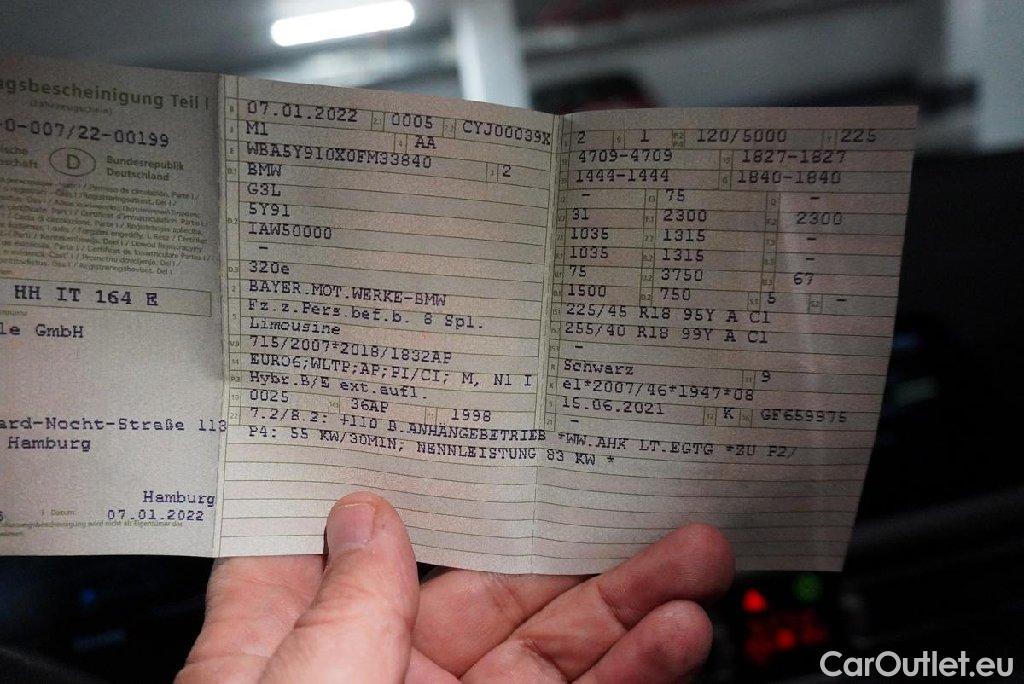 ngsbescheinigung Teil I
(Fahrzeugschein)
-0-007/22-00199
D
Bundesrepublik
Deutschland
HH IT 164 E
le GmbH
ard-Nocht-Straße 113
Hamburg
Hamburg
07.01.2022
07.01.2022 0005 CYJ00039X
M1 AA
WBA5Y910X0FM33840 2
BMW
G3L
5Y91
IAW50000
–
320e
BAYER.MOT.WERKE-BMW
Fz.z.Pers.bef.b. 8 Spl.
Limousine
715/2007*2018/1832AP
EURO6;WLTP;AP;PI/CI; M, N1 I
Hybr.B/E ext.aufl.
0025 36AP 1998
7.2/8.2: +110 B.ANHÄNGEBETRIEB *WW.AHK LT.EGTG *ZU P2/
P4: 55 KW/30MIN; NENNLEISTUNG 83 KW *
2 1 120/5000 225
4709-4709 1827-1827
1444-1444 1840-1840
– 75 –
31 2300 2300
1035 1315 –
1035 1315 –
75 3750 67
1500 750 5 –
225/45 R18 95Y A C1
255/40 R18 99Y A C1
–
Schwarz 9
e1*2007/46*1947*08
15.06.2021 K GF659975
–
CarOutlet.eu